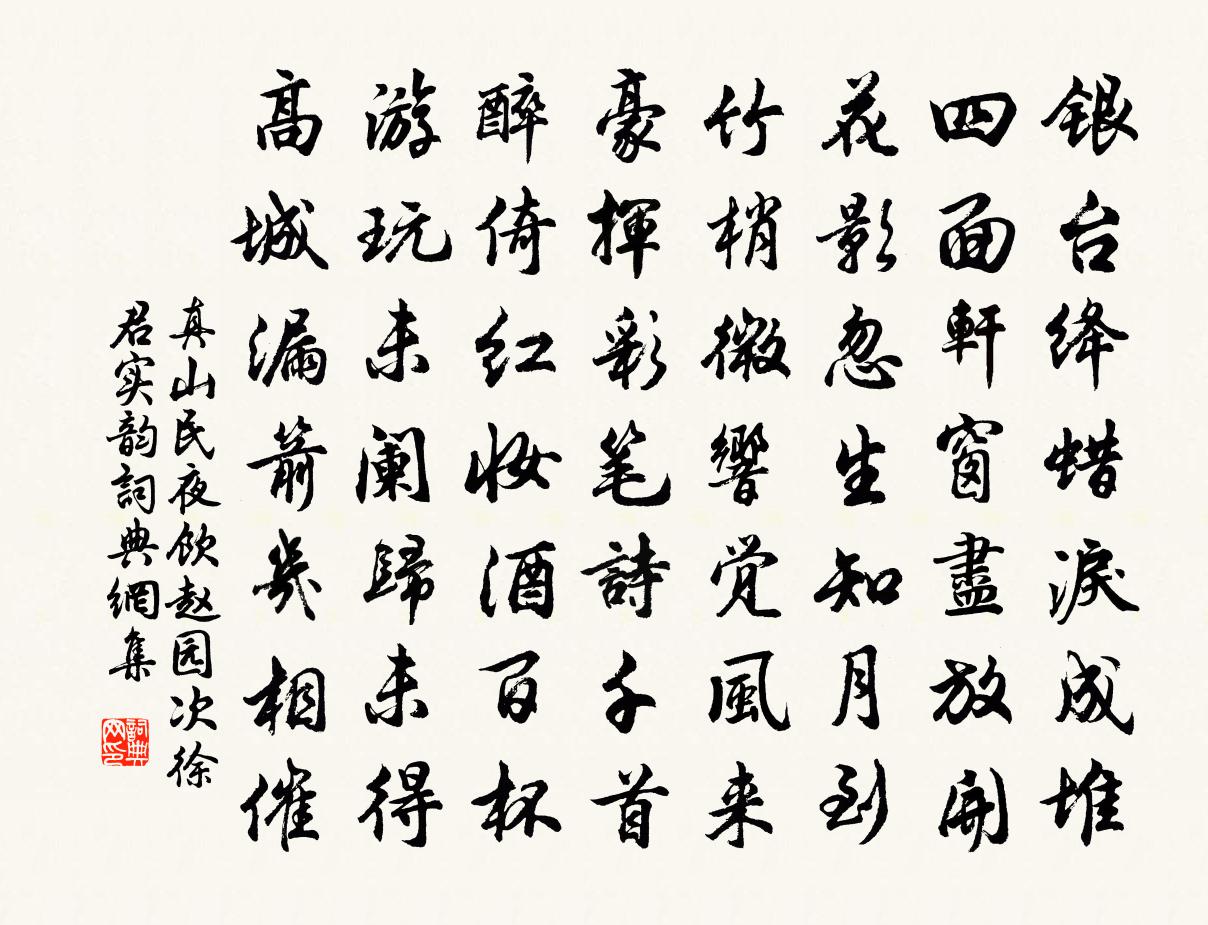 银台绛蜡淚成堆
四面軒窗盡放開
花影忽生知月到
竹梢微響觉風来
豪揮彩笔詩千首
醉倚红妆酒百杯
游玩未阑歸未得
高城漏箭幾相催
真山民夜饮赵园次徐
君实韵詞典網集
詞典
网印